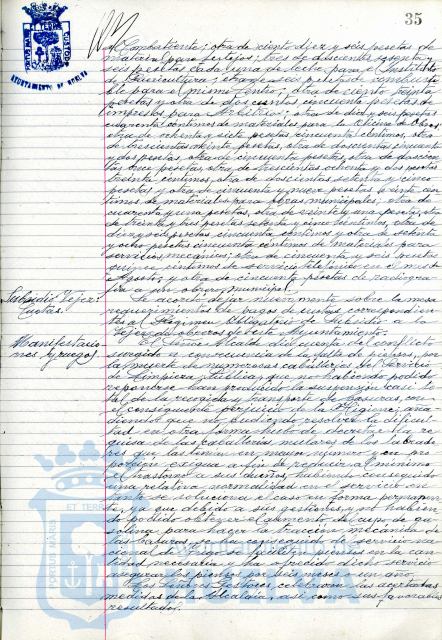 35
AYUNTAMIENTO DE HUELVA
Combatiente; otra de ciento diez y seis pesetas de
material para festejos; tres de doscientas setenta y
seis pesetas cada una de leche para el Instituto
de Puericultura; otra de seis pesetas de combusti-
ble para el mismo Centro; otra de ciento treinta
pesetas y otra de doscientas cincuenta pesetas de
impresos para Arbitrios; otra de diez y seis pesetas
cuarenta céntimos de materiales para la Oficina de Obras;
otra de ochenta y siete pesetas cincuenta céntimos, otra
de trescientas veinte pesetas, otra de doscientas cincuenta
y dos pesetas, otra de cincuenta pesetas, otra de doscien-
tas trece pesetas, otra de trescientas ochenta y dos pesetas
treinta céntimos, otra de doscientas setenta y cinco
pesetas y otra de cincuenta y nueve pesetas veinte cén-
timos de materiales para obras municipales; otra de
cuarenta y una pesetas, otra de veinte y una pesetas, otra
de treinta y tres pesetas setenta y cinco céntimos, otra de
diez y seis pesetas cincuenta céntimos y otra de setenta
y ocho pesetas cincuenta céntimos de materiales para
servicios mecánicos; otra de cincuenta y seis pesetas
quince céntimos de servicio telefónico en el mes de
Agosto, y otra de cincuenta pesetas de radiogra-
fía a un obrero municipal.
Subsidio Vejez:
Cuotas.
Se acordó dejar nuevamente sobre la mesa
requerimientos de pagos de cuotas correspondien-
tes al Régimen Obligatorio de Subsidio a la
Vejez de obreros de este Ayuntamiento.
Manifestacio-
nes y ruegos.
El Señor Alcalde dió cuenta del conflicto
surgido a consecuencia de la falta de piensos, por
la muerte de numerosas caballerías del Servicio
de Limpieza pública, que no habiendo podido
reponerse han producido la suspensión casi to-
tal de la recogida y transporte de basuras, con
el consiguiente perjuicio de la Higiene; aña-
diendo que no pudiendo resolver la dificul-
tad en otra forma hubo de decretar la re-
quisa de las caballerías mulares de los labrado-
res que las tenían en mayor número y en pro-
porción exigua a fin de reducir al mínimo
el trastorno a sus dueños, habiendo conseguido
una relativa normalidad en servicio; no obs-
tante se soluciona el caso en forma permanen-
te, ya que debido a sus gestiones, y no habien-
do podido obtener el aumento del cupo de ga-
solina para hacer la tracción mecánica de
las basuras, se ha conseguido del servicio na-
cional de Trigo se facilite piensos en la can-
tidad necesaria y ha ofrecido dicho servicio
asegurar los piensos por seis meses o un año.
Los Señores Gestores, celebraron las acertadas
medidas de la Alcaldía, así como sus favorables
resultados.